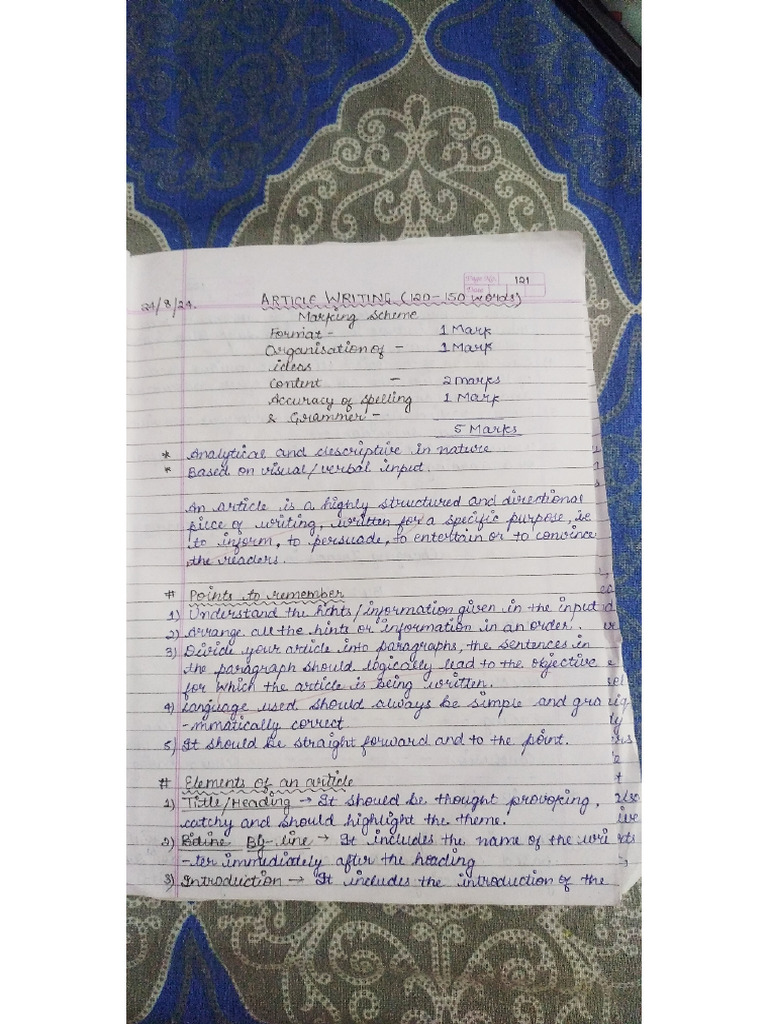 Page No. 121
Date
24/8/24. ARTICLE WRITING (120-150 words)
Marking Scheme
Format - 1 Mark
Organisation of - 1 Mark
ideas
Content - 2 marks
Accuracy of spelling 1 Mark
& Grammer -
5 Marks
* Analytical and descriptive in nature
* Based on visual/verbal input.
An article is a highly structured and directional
piece of writing, written for a specific purpose, ie
to inform, to persuade, to entertain or to convince
the readers.
# Points to remember
1) Understand the hints/information given in the input
2) Arrange all the hints or information in an order.
3) Divide your article into paragraphs, the sentences in
the paragraph should logically lead to the objective
for which the article is being written.
4) Language used should always be simple and gra
-mmatically correct
5) It should be straight forward and to the point.
# Elements of an article
1) Title/Heading → It should be thought provoking,
catchy and should highlight the theme.
2) By-line → It includes the name of the wri
-ter immediately after the heading
3) Introduction → It includes the introduction of the